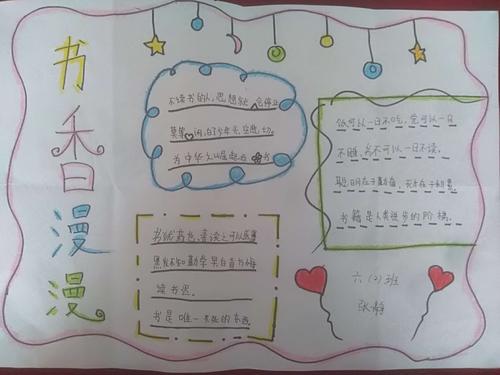 书香漫漫
不读书的人,思想就会停止
莫等闲,白了少年头,空悲切。
为中华之崛起而读书
饭可以一日不吃,觉可以一日
不睡,书不可以一日不读。
聪明在于勤奋,天才在于积累
书籍是人类进步的阶梯。
书犹药也,善读之可以医愚
黑发不知勤学早白首方悔
读书迟。
书是唯一不死的东西
六(2)班
张静